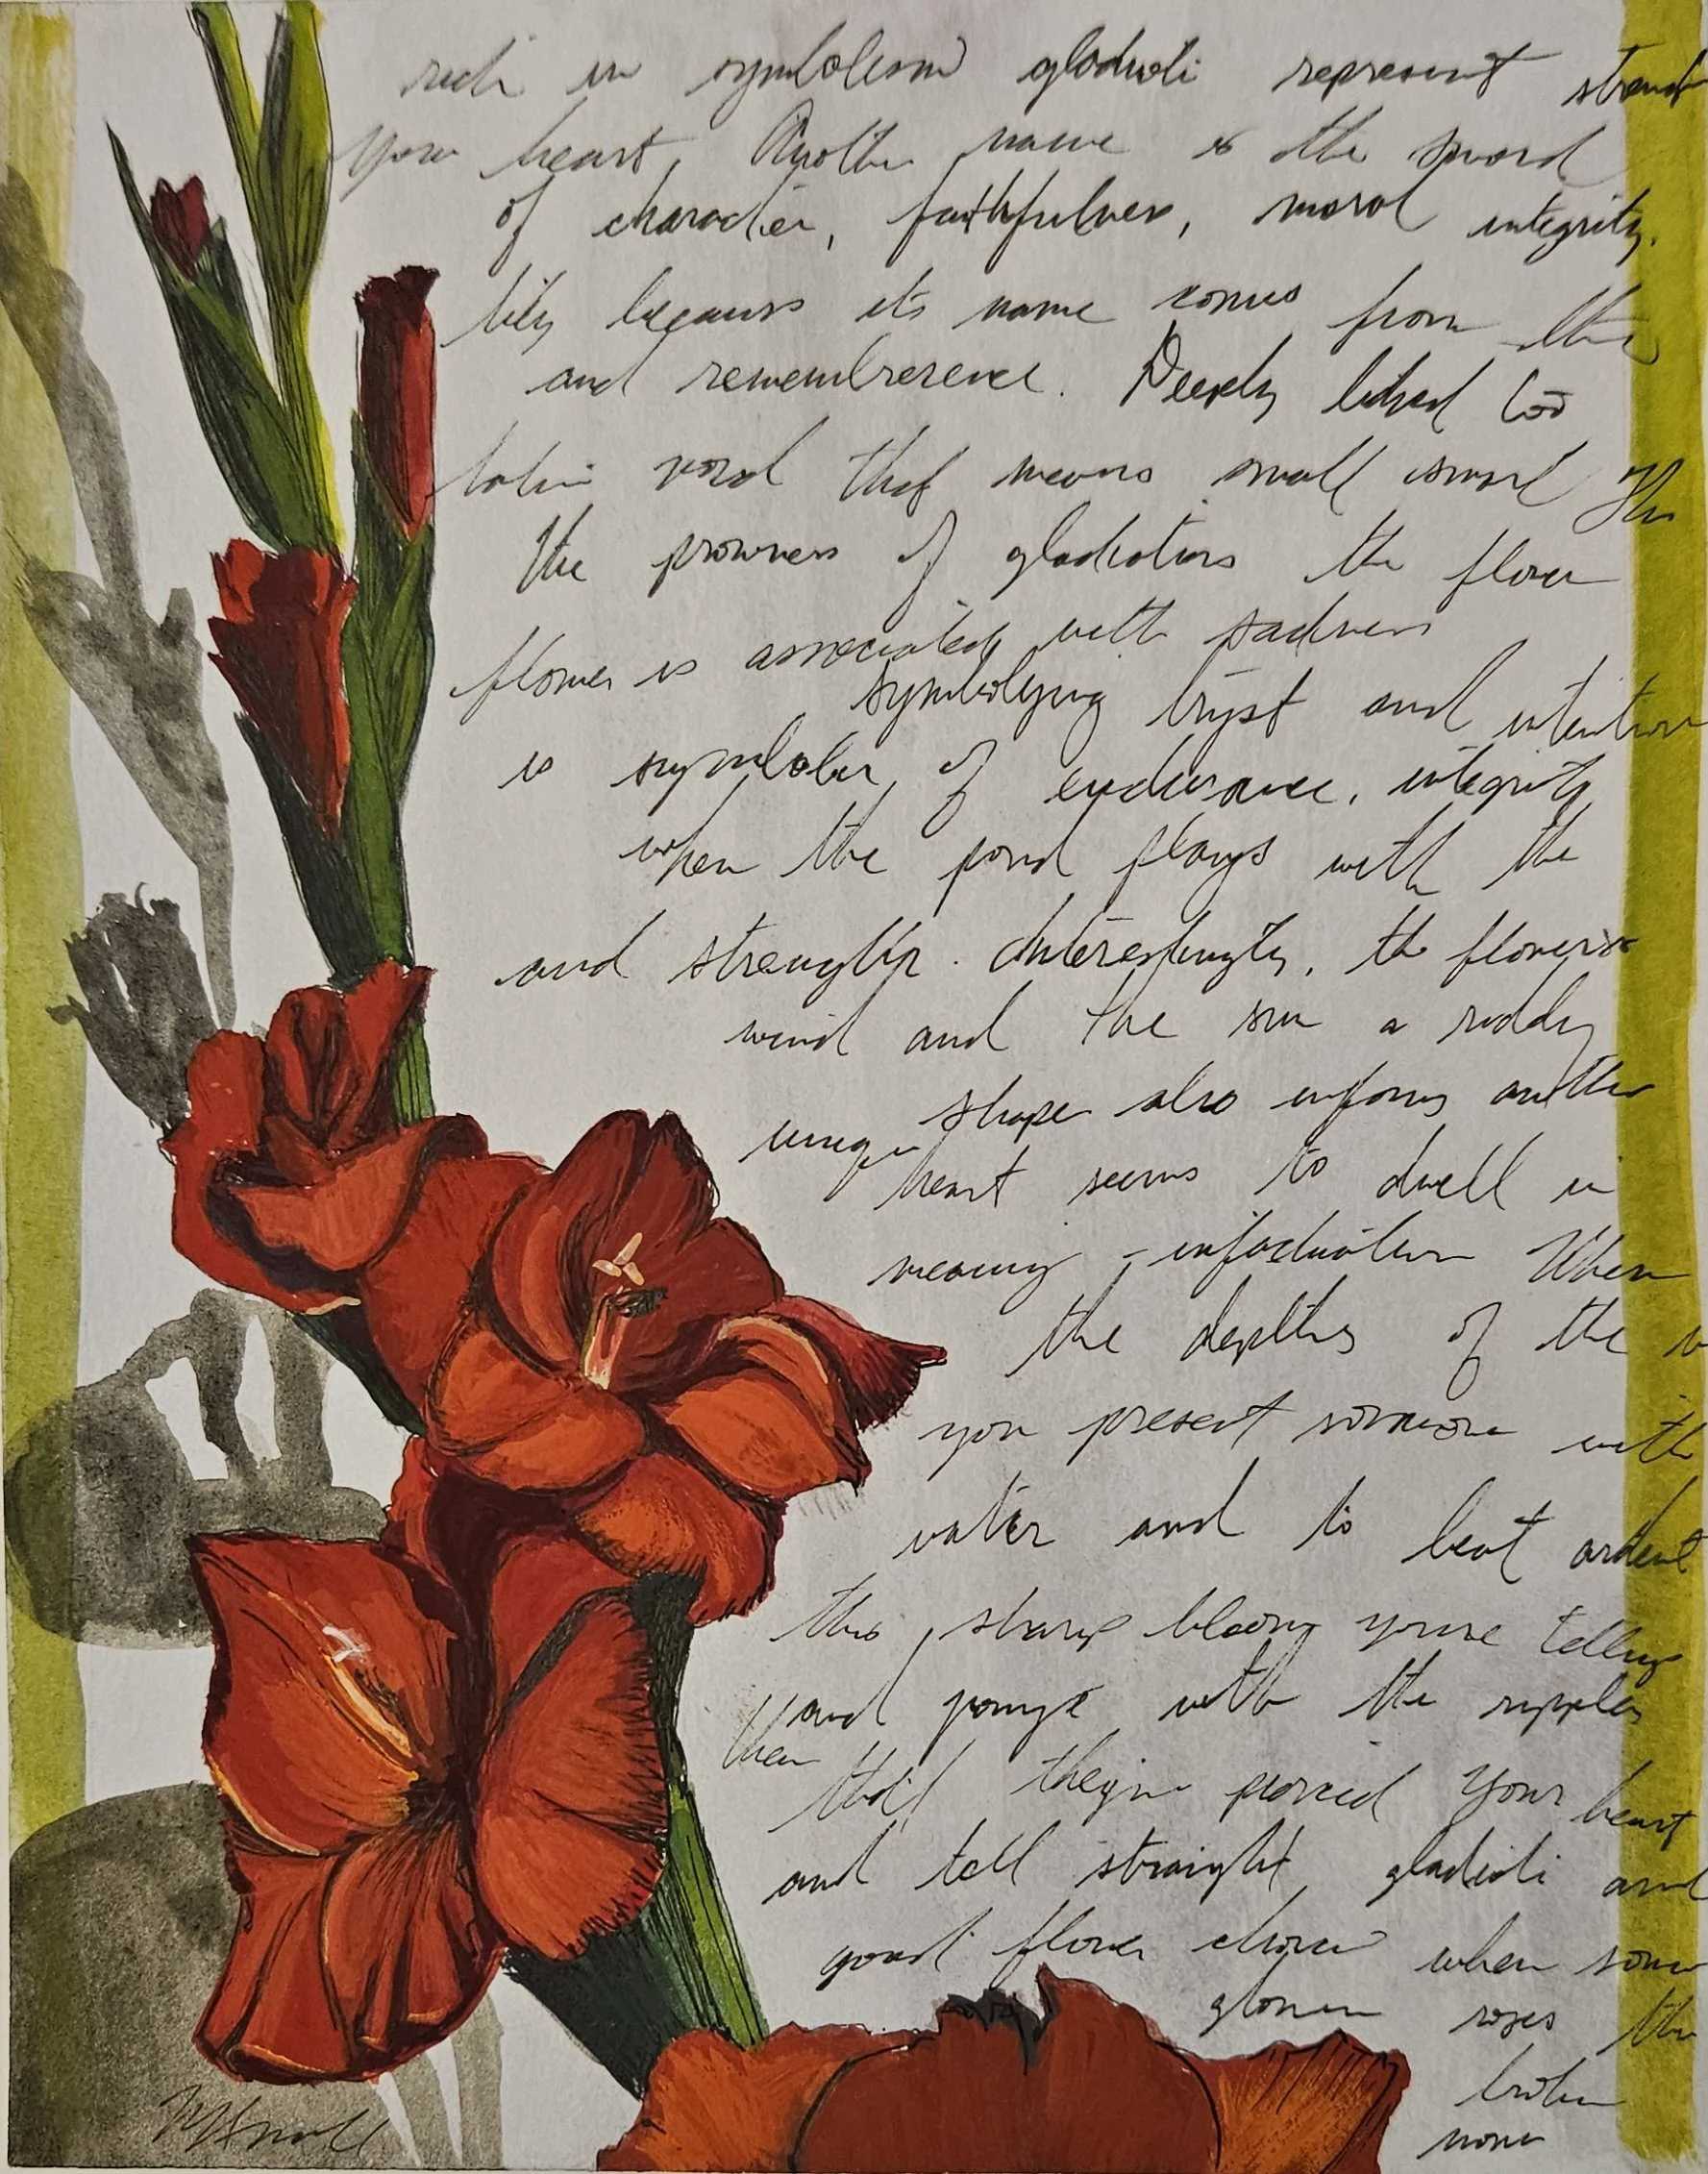 rich in symbolism gladioli represent
your heart. Another name is the sword
of character, faithfulness, moral integrity,
lily because its name comes from the
and remembrerence. Deeply linked too
latin word that means small sword The
the prowness of gladiators the flower
flower is associated with sadness
symbolizing tryst and intention
is symbolic of endurance, integrity
when the pond plays with the
and strength. Interestingly, the flowers
wind and the sun a ruddy
unique shape also informs another
heart seems to dwell in
meaning - infactuation When
the depths of the
you present someone with
water and to beat ardent
this sharp bloom youre telling
and pomp with the ripples
then that they've pierced your heart
and tell straight gladioli and
good flower choice when some
roses the
broken
none
MHnoll